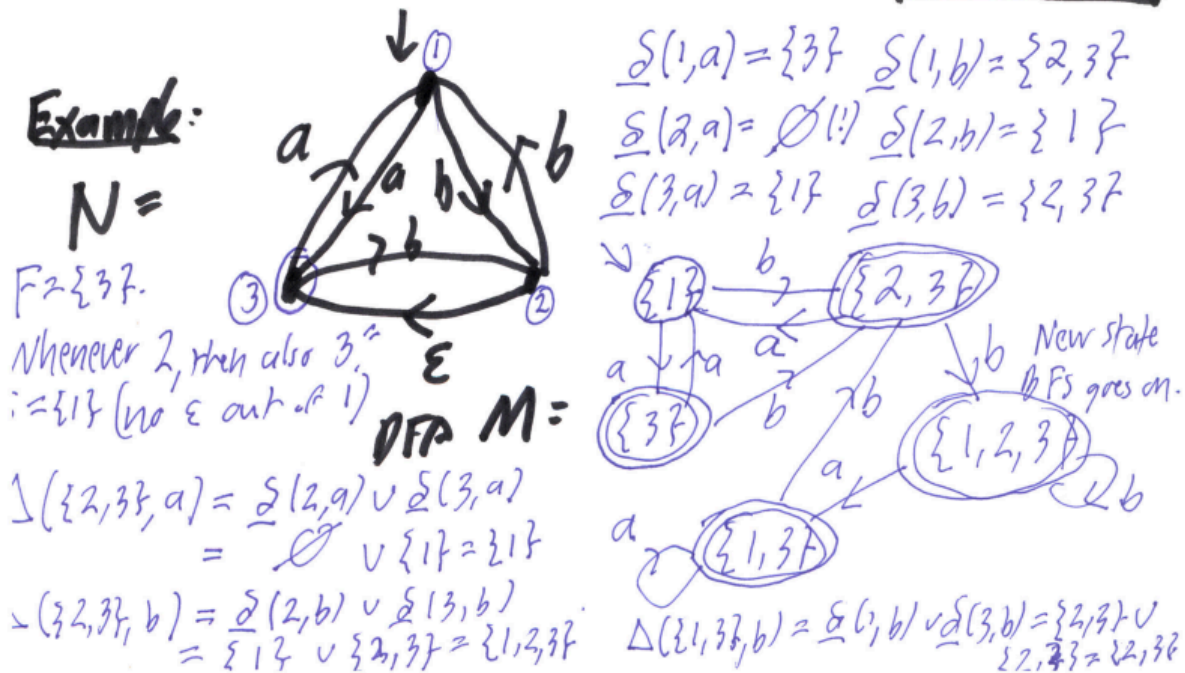 Example:
N =
①
a
a
b
b
b
③
②
ε
F = {3}.
Whenever 2, then also 3.
:= {1} (no ε out of 1)
DFA M =
Δ({2,3}, a) = δ(2,a) ∪ δ(3,a)
= ∅ ∪ {1} = {1}
Δ({2,3}, b) = δ(2,b) ∪ δ(3,b)
= {1} ∪ {2,3} = {1,2,3}
δ(1,a) = {3} δ(1,b) = {2,3}
δ(2,a) = ∅(!) δ(2,b) = {1}
δ(3,a) = {1} δ(3,b) = {2,3}
{1}
b
{2,3}
a
a
a
b
b
b
New state
BFS goes on.
{3}
{1,2,3}
a
b
a
{1,3}
Δ({1,3}, b) = δ(1,b) ∪ δ(3,b) = {2,3} ∪
{2,3} = {2,3}